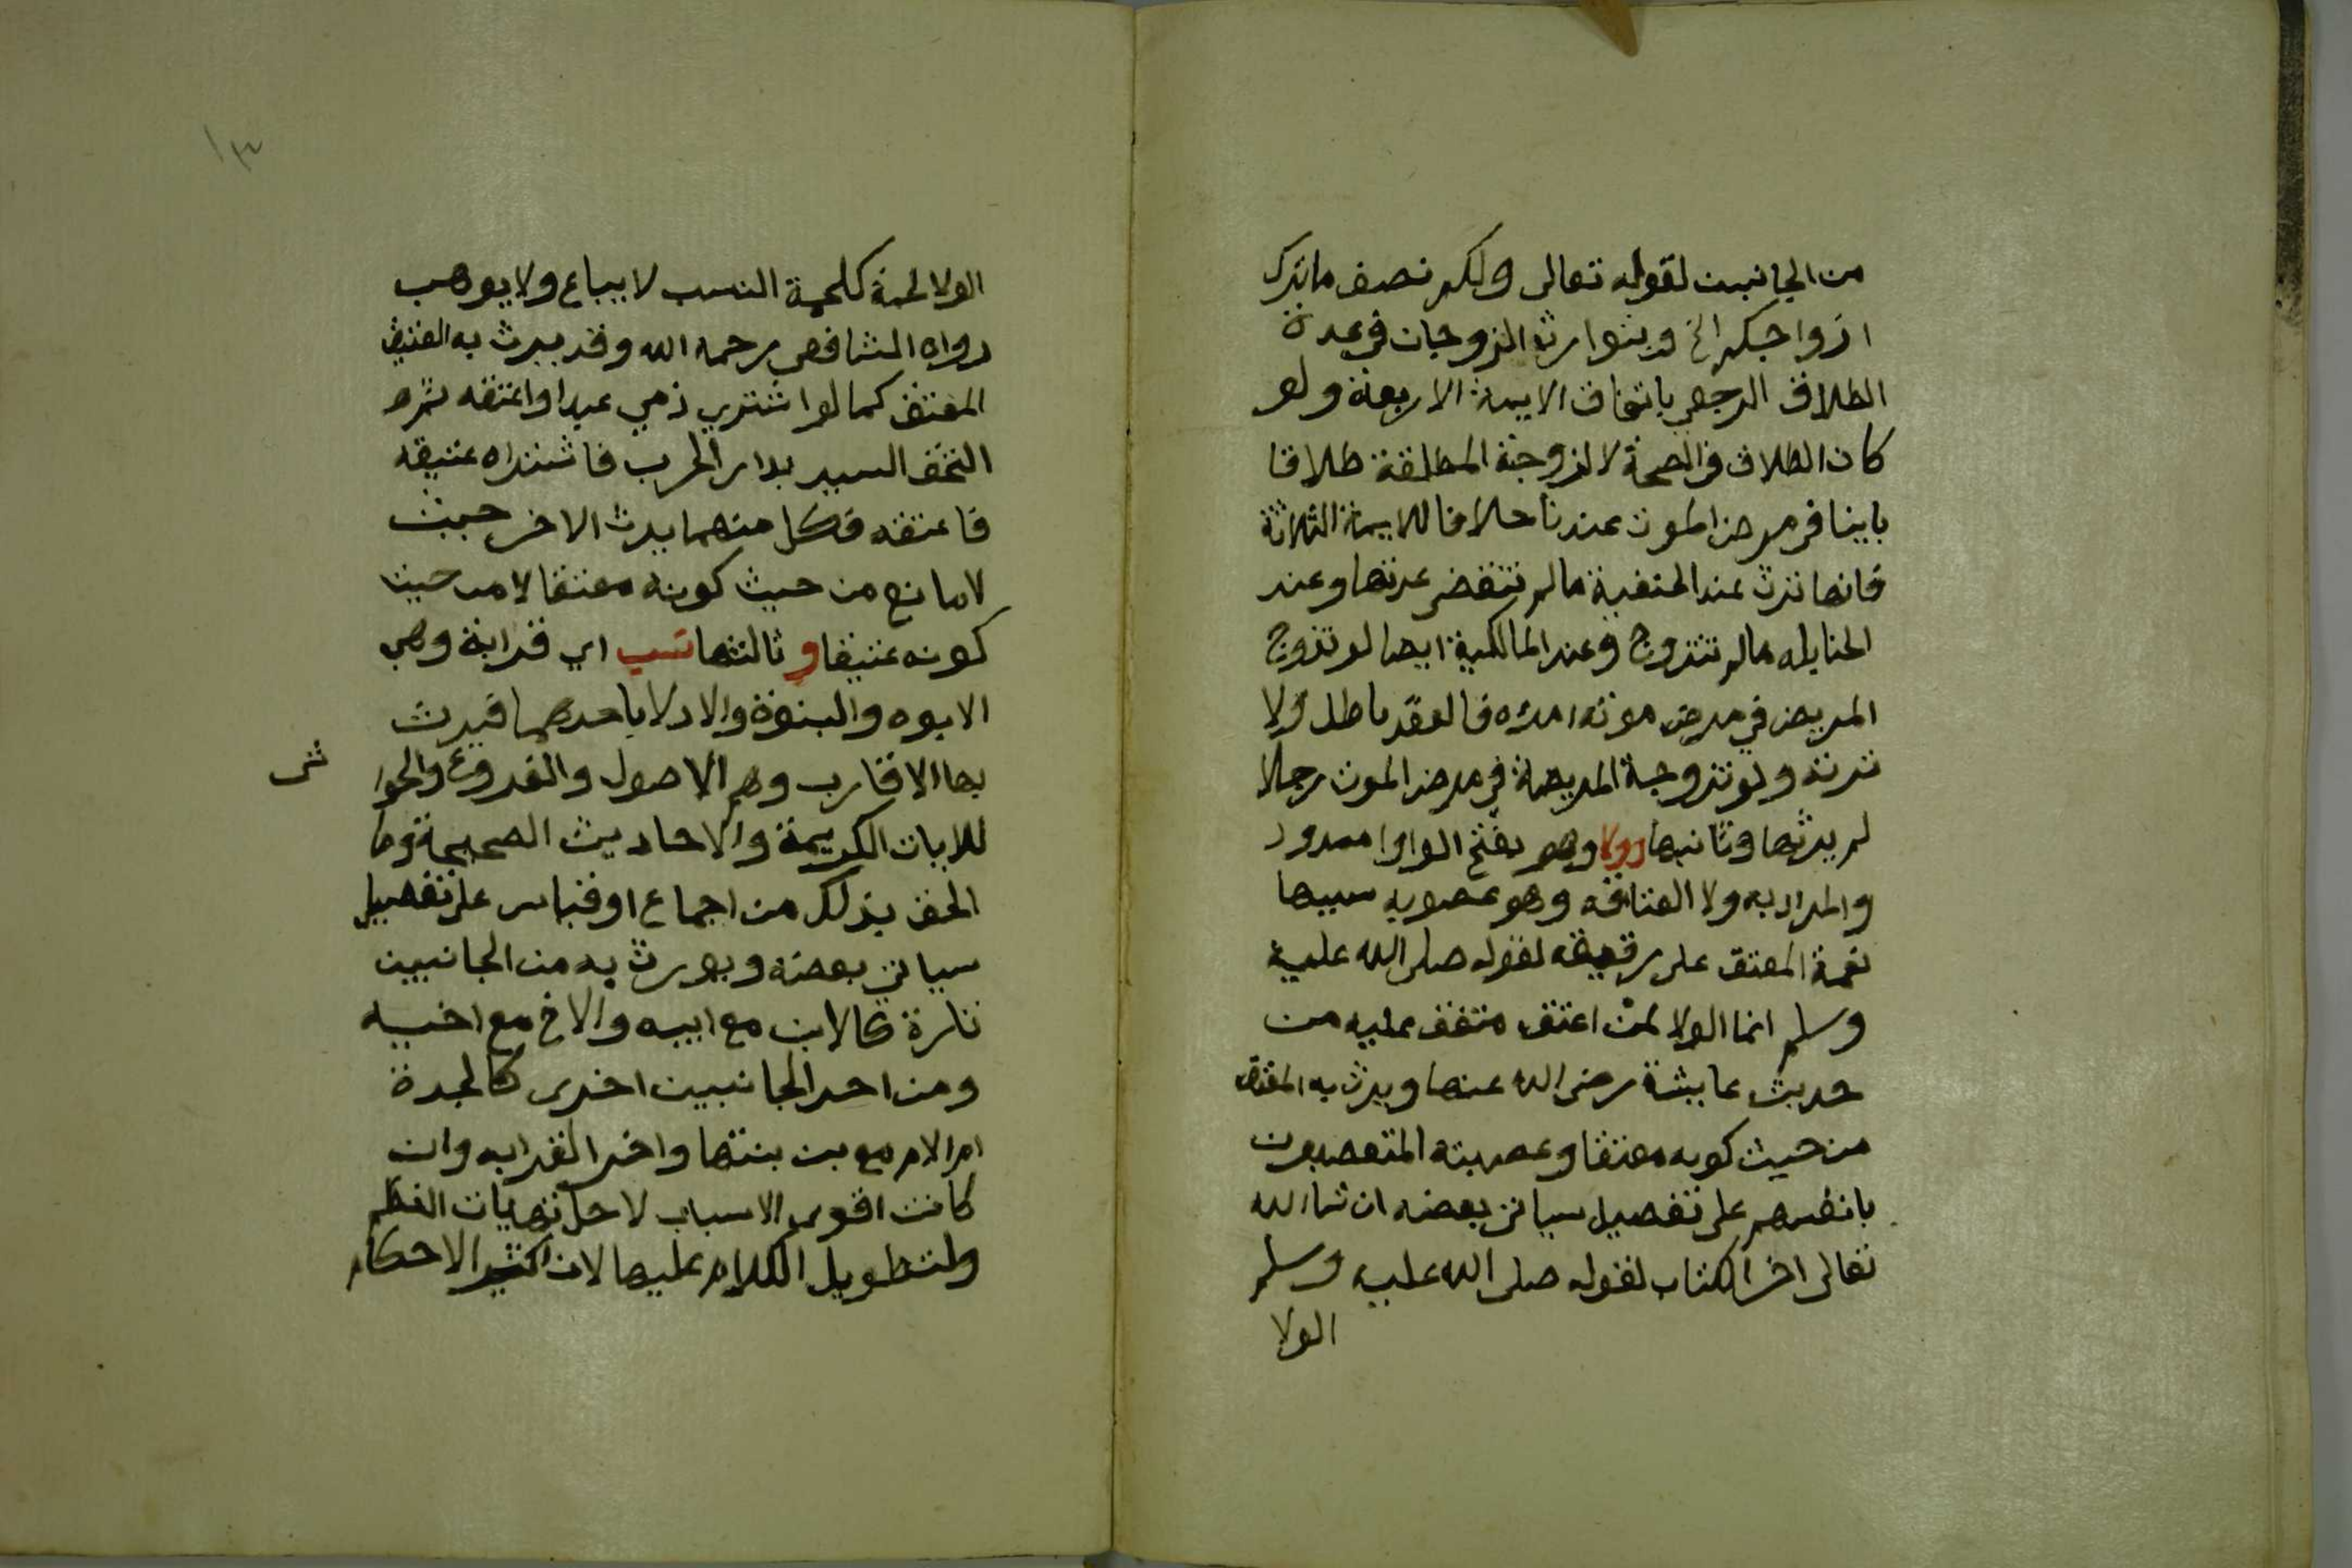 من الجانبين لقوله تعالى ولكم نصف ما ترك
ازواجكم الخ ويتوارث الزوجان في عدة
الطلاق الرجعي باتفاق الايمة الاربعة ولو
كان الطلاق في الصحة لا الزوجة المطلقة طلاقا
باينا في مرض الموت عندنا خلافا للايمة الثلاثة
فانها ترث عند الحنفية ما لم تنقض عدتها وعند
الحنابله ما لم تتزوج وعند المالكية ايضا لو تزوج
المريض في مرض موته امراه فالعقد باطل ولا
ترثه ولو تزوجة المريضة في مرض الموت رجلا
لم يرثها وثانيها وولا وهو بفتح الواو ممدود
والمراد به ولا العتاقه وهو عصوبه سببها
نعمة المعتق على رقيقه لقوله صلى الله عليه
وسلم انما الولا لمن اعتق متفق عليه من
حديث عايشة رضى الله عنها ويرث به المعتق
من حيث كونه معتقا وعصبته المتعصبون
بانفسهم على تفصيل سياتى بعضه ان شا الله
تعالى اخر الكتاب لقوله صلى الله عليه وسلم
الولا
١٣
الولا لحمة كلحمة النسب لا يباع ولا يوهب
رواه الشافعي رحمه الله وقد يرث به العتيق
المعتق كما لو اشترى ذمي عبدا واعتقه ثم
التحق السيد بدار الحرب فاشتراه عتيقه
فاعتقه فكل منهما يرث الاخر حيث
لا مانع من حيث كونه معتقا لا من حيث
كونه عتيقا و ثالثها نسب اي قرابة وهي
الابوه والبنوة والادلا باحدهما فيرث
بها الاقارب وهم الاصول والفروع والحوا
شى
للايات الكريمة والاحاديث الصحيحة وما
الحق بذلك من اجماع او قياس على تفصيل
سياتي بعضه ويورث به من الجانبين
تارة كالابن مع ابيه والاخ مع اخيه
ومن احد الجانبين اخرى كالجدة
ام الام مع بن بنتها واخر القرابه وان
كانت اقوى الاسباب لاجل النظم
ولتطويل الكلام عليها لان اكثر الاحكام